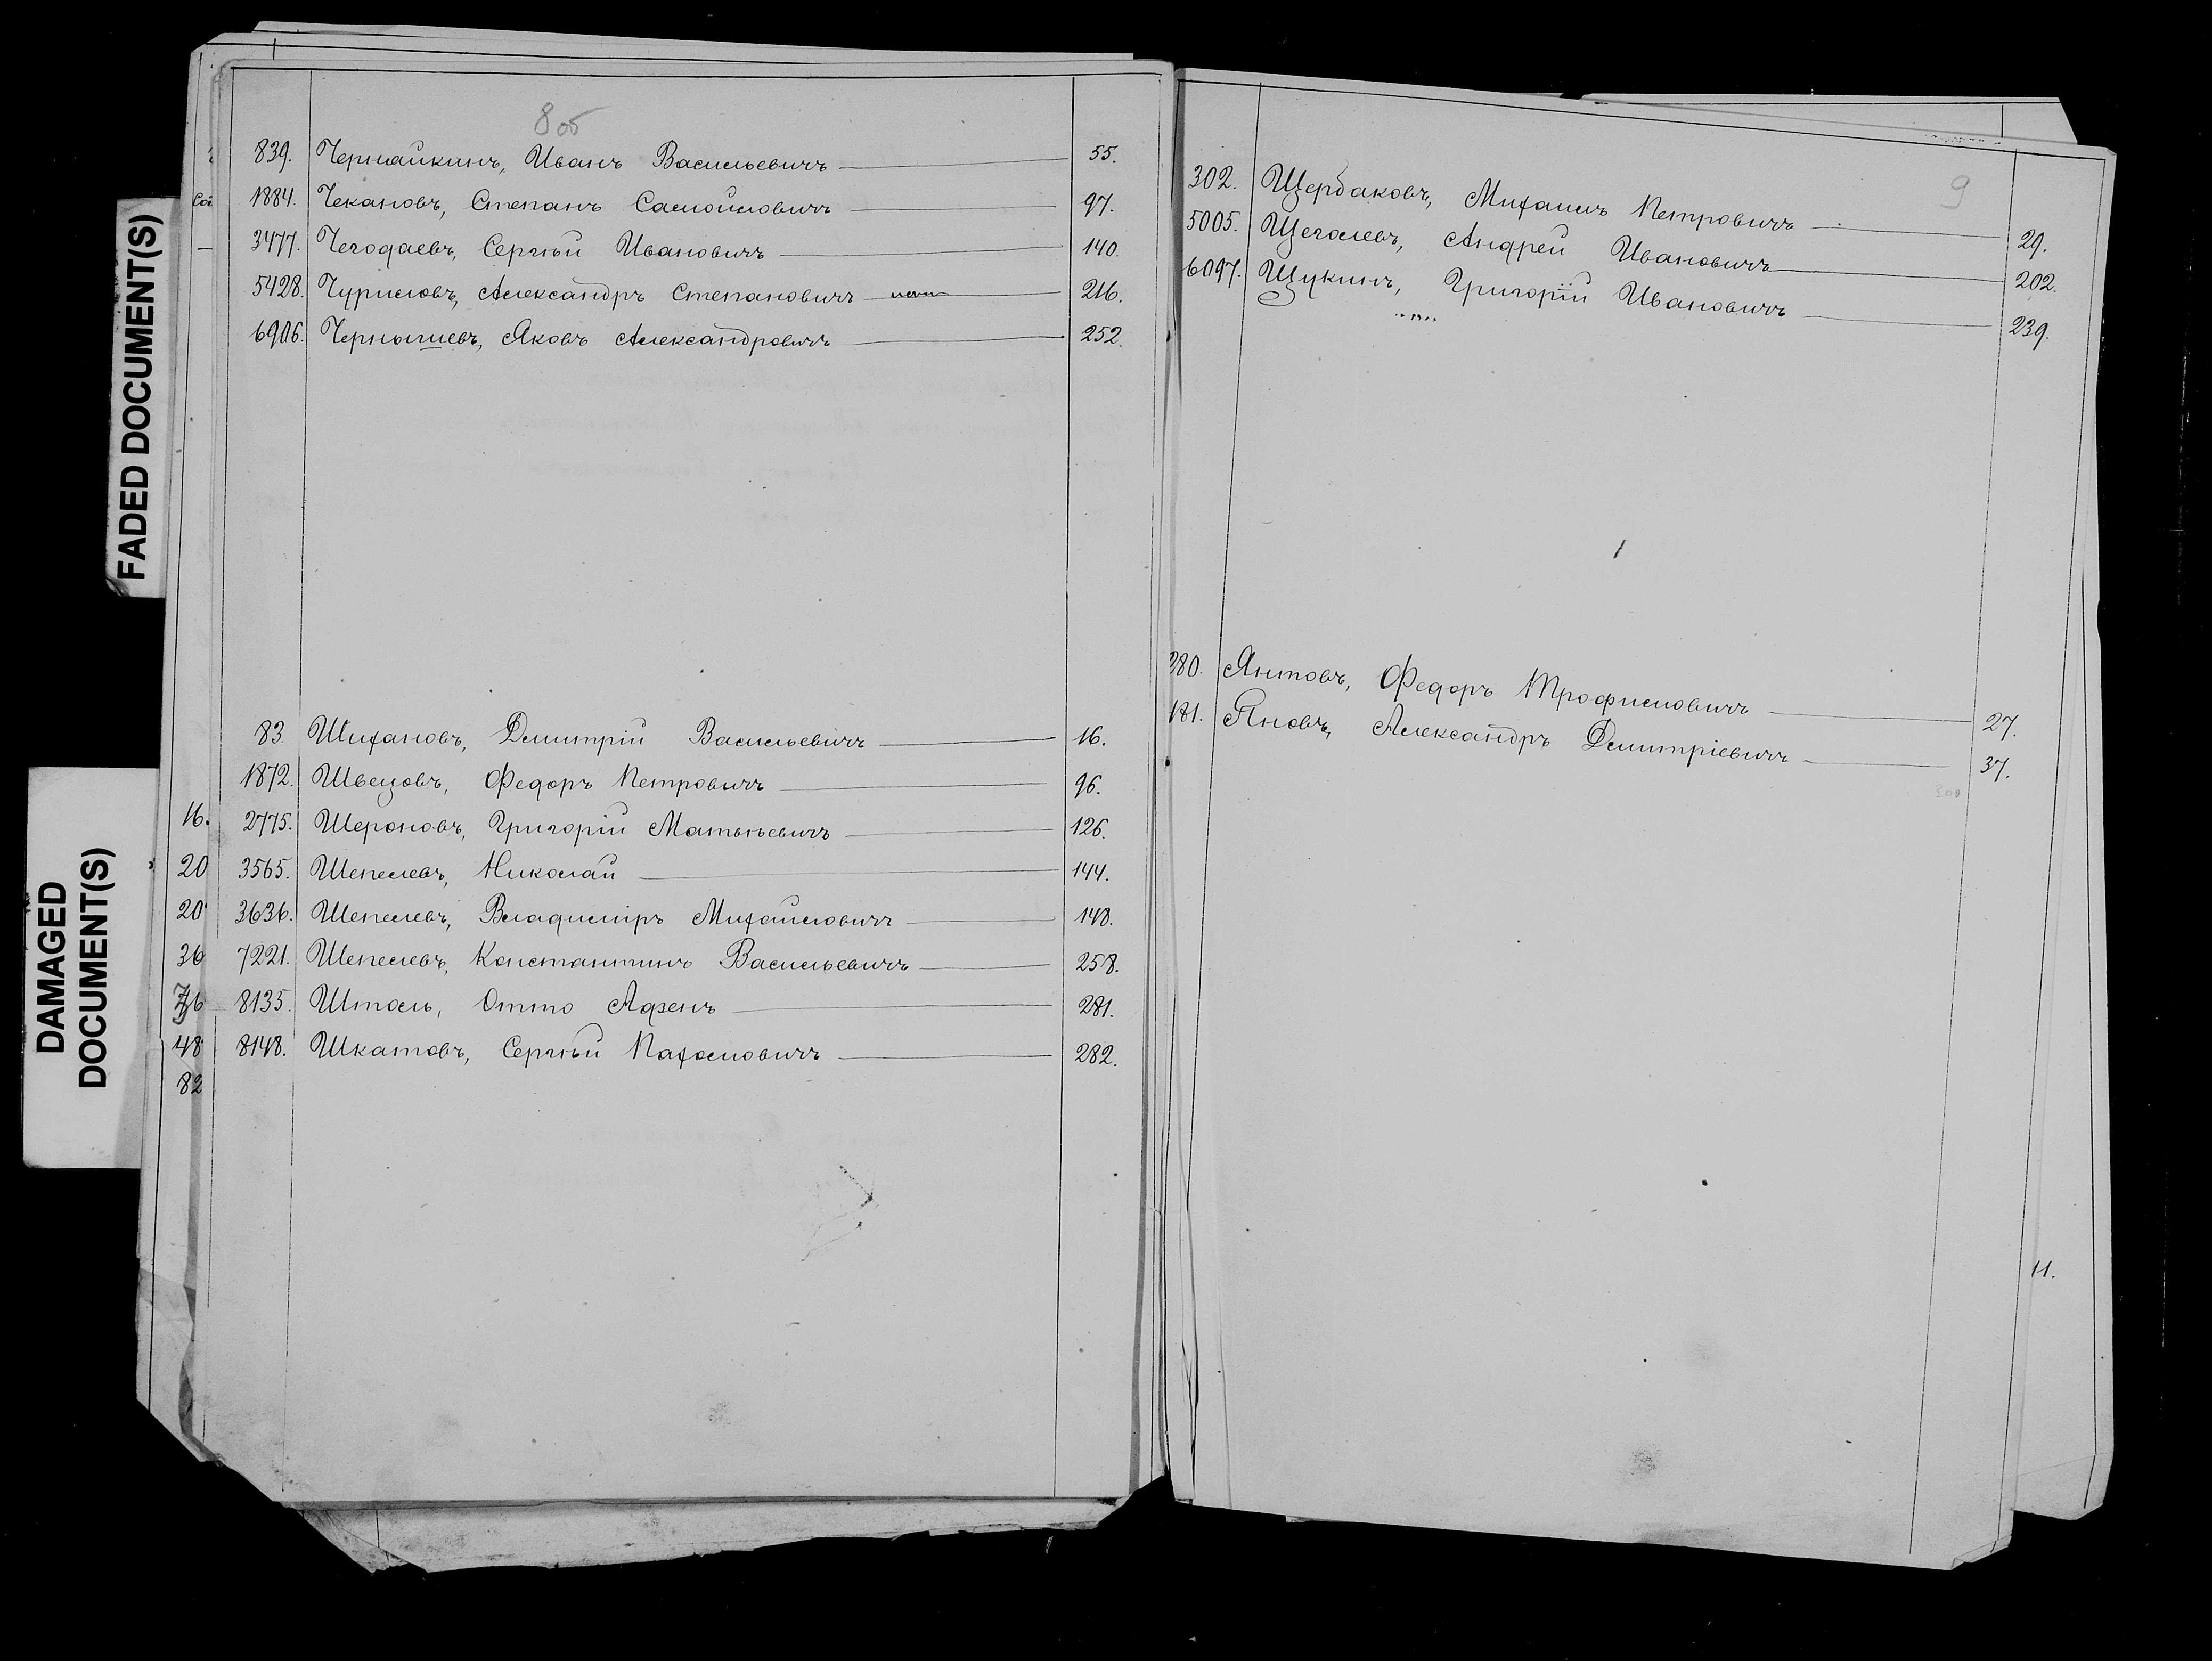 FADED DOCUMENT(S)
DAMAGED DOCUMENT(S)
8 об
839. Чернайкинъ, Иванъ Васильевичъ 55.
1884. Чекановъ, Степанъ Самойловичъ 97.
3477. Чегодаевъ, Сергѣй Ивановичъ 140.
5428. Чуриловъ, Александръ Степановичъ 216.
6906. Чернышевъ, Яковъ Александровичъ 252.
83. Шифановъ, Дмитрій Васильевичъ 16.
1872. Швецовъ, Федоръ Петровичъ 96.
2775. Шероновъ, Григорій Матвѣевичъ 126.
3565. Шепелевъ, Николай 144.
3636. Шепелевъ, Владиміръ Михайловичъ 148.
7221. Шепелевъ, Константинъ Васильевичъ 258.
8135. Штоль, Отто 281.
8148. Шкатовъ, Сергѣй Пахомовичъ 282.
16.
20
20
36
48
82
9
302. Щербаковъ, Михаилъ Петровичъ 29.
5005. Щеголевъ, Андрей Ивановичъ 202.
6097. Щукинъ, Григорій Ивановичъ 239.
280. Янтовъ, Федоръ Трофимовичъ 27.
181. Яновъ, Александръ Дмитріевичъ 37.
11.